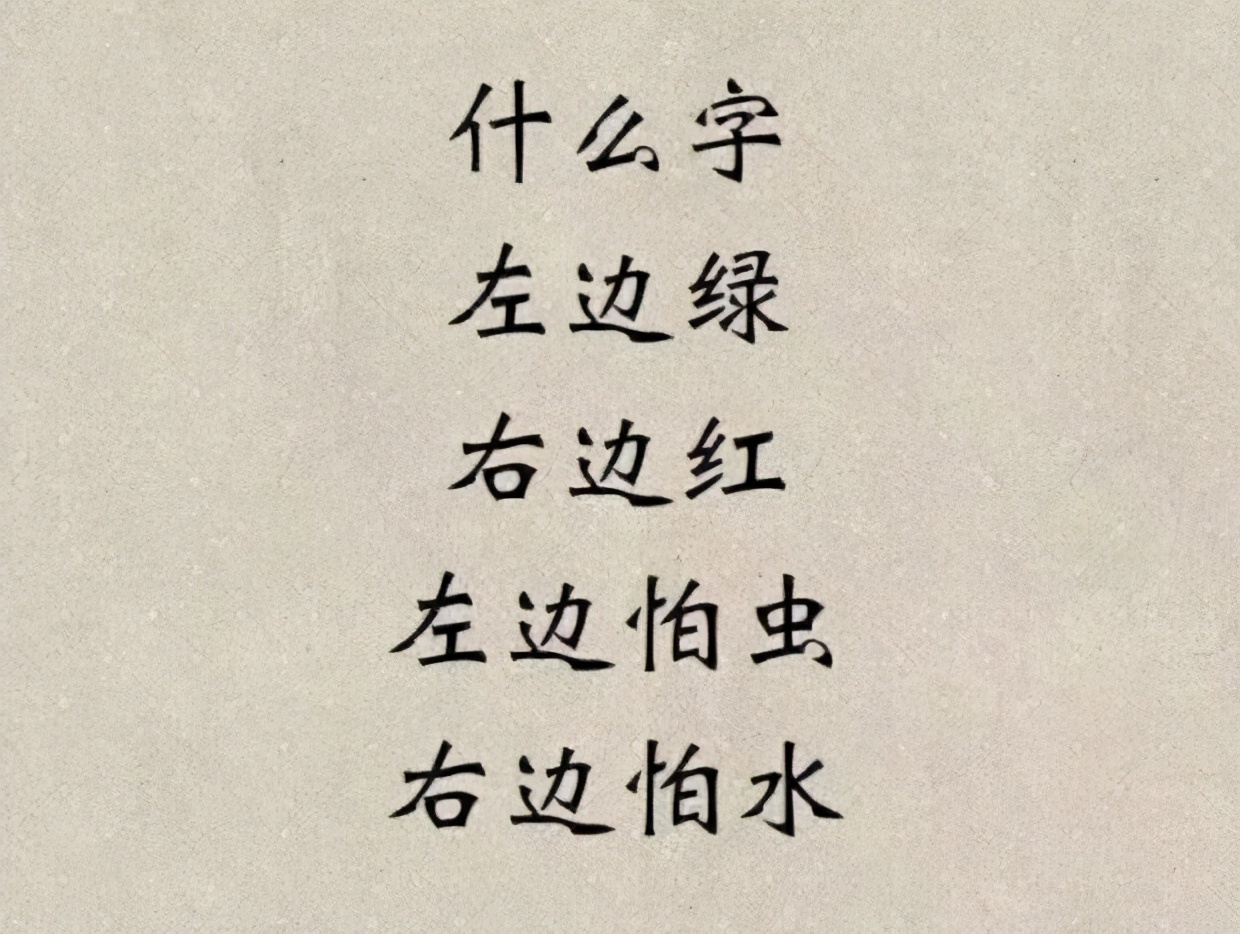 什么字
左边绿
右边红
左边怕虫
右边怕水